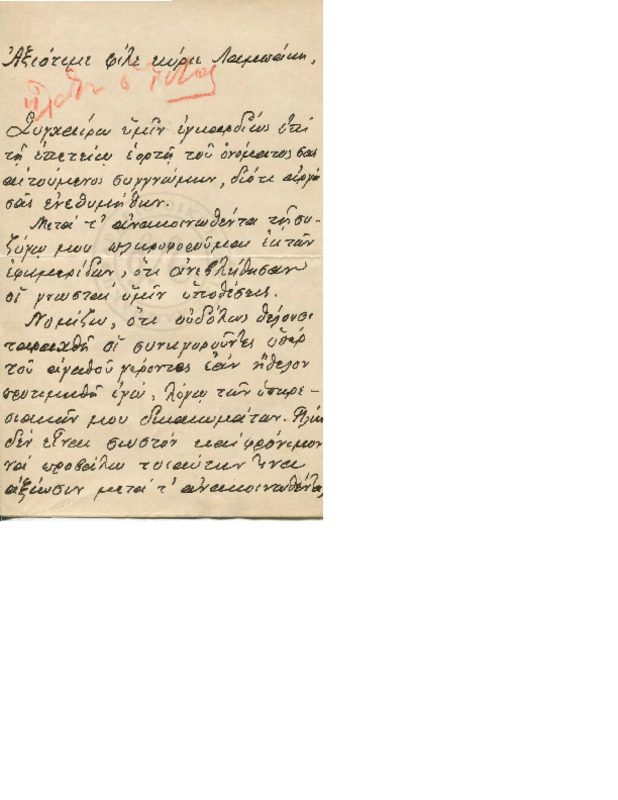 Ἀξιότιμε φίλε κύριε Λαμπάκη,
Συγχαίρω ὑμῖν ἐγκαρδίως ἐπὶ
τῇ ἐπετείῳ ἑορτῇ τοῦ ὀνόματός σας
αἰτούμενος συγγνώμην, διότι ἀργὰ
σᾶς ἐνεθυμήθην.
Μετὰ τ' ἀνακοινωθέντα τῇ συ-
ζύγῳ μου πληροφοροῦμαι ἐκ τῶν
ἐφημερίδων, ὅτι ἀνεβλήθησαν
αἱ γνωσταὶ ὑμῖν ὑποθέσεις.
Νομίζω, ὅτι οὐδόλως θέλουσι
ταραχθῆ οἱ συνηγοροῦντες ὑπὲρ
τοῦ ἀγαθοῦ γέροντος ἐὰν ἤθελον
προτιμηθῆ ἐγώ, λόγῳ τῶν ὑπηρε-
σιακῶν μου δικαιωμάτων.
δὲν εἶναι σωστὸν καὶ φρόνιμον
νὰ προβάλω τοιαύτην τινα
ἀξίωσιν μετὰ τ' ἀνακοινωθέντα,